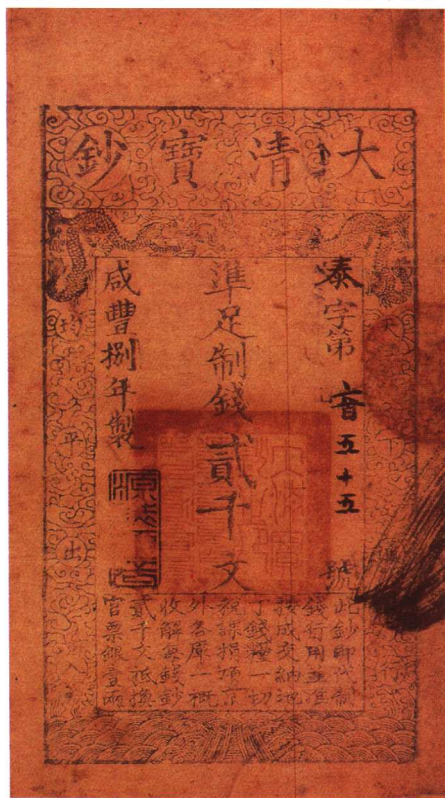 大清寶鈔
天下通行
泰字第 五十五號
準足制錢貳千文
咸豐捌年製
均平出入
此鈔即代制
錢行用並准
按成交納地
丁錢糧一切
稅課捐項京
外各庫一概
收解每錢鈔
貳千文抵換
官票銀壹兩